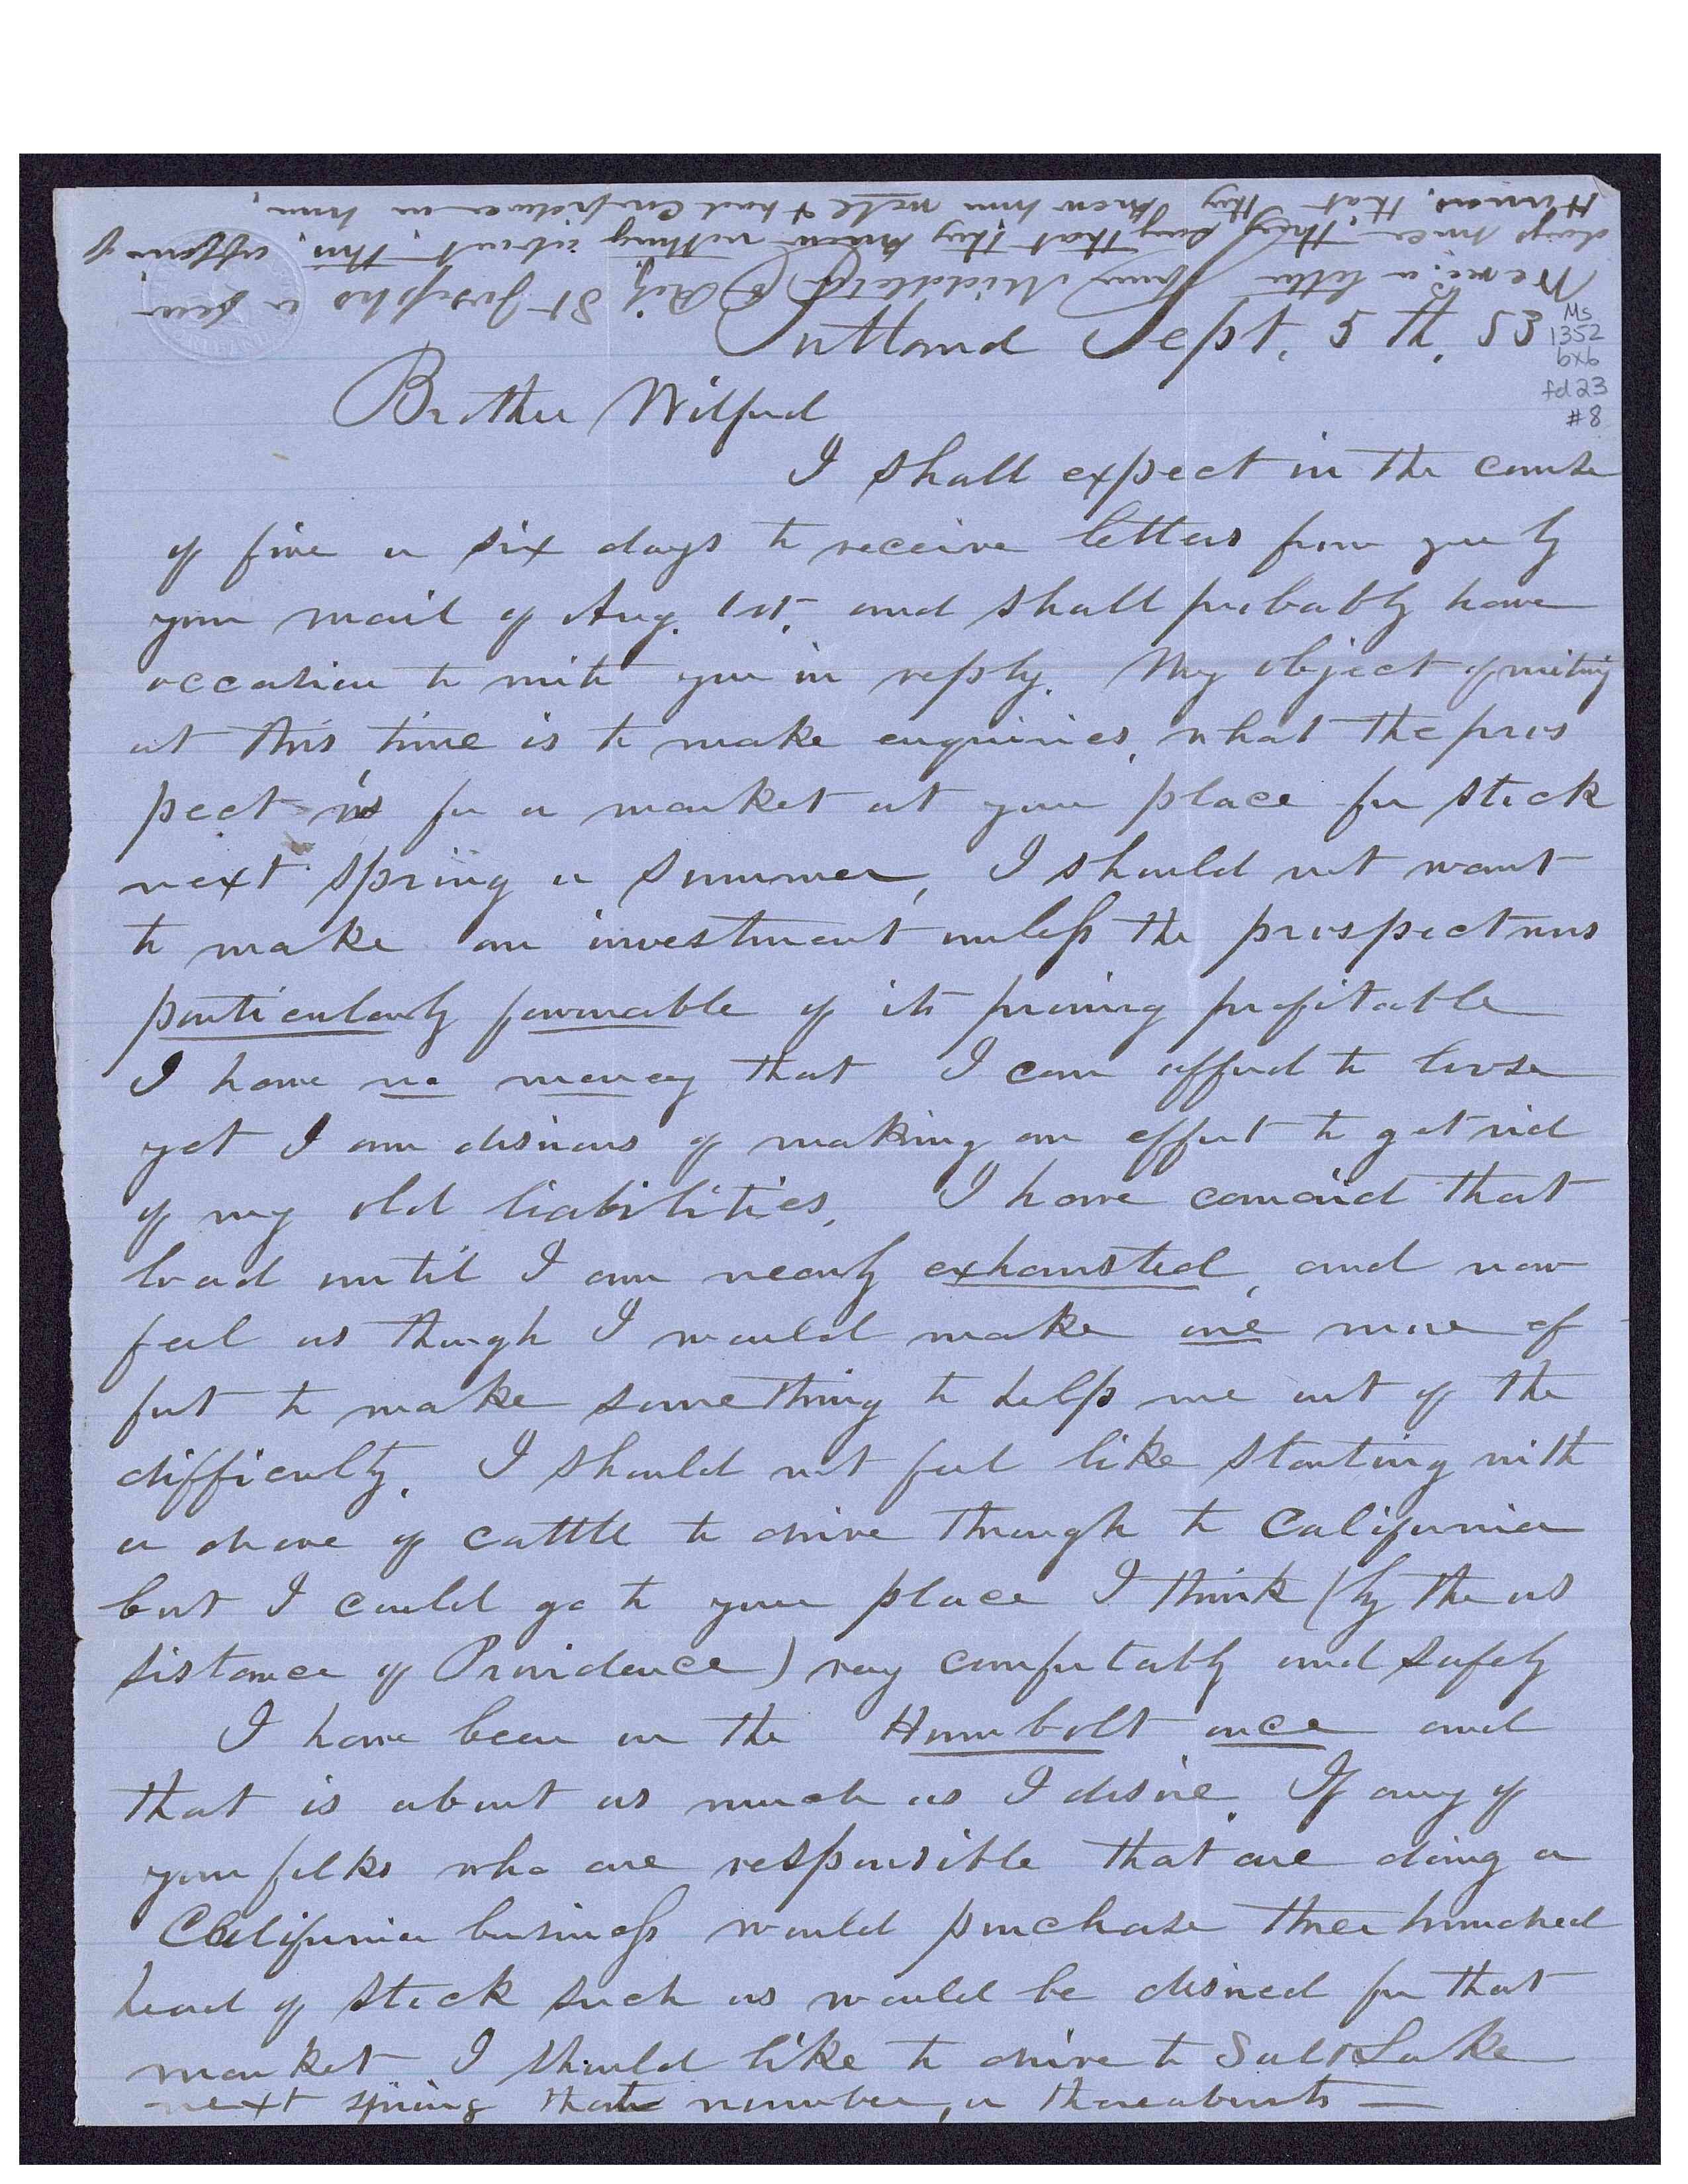 We rec.d a letter from Middleton & Rily St Josephs a few
days since, they say that they knew nothing about this affair of
Hinman, that they knew him well & had confidence in him.
Rutland Sept. 5th. 53
Ms
1352
bx6
fd 23
#8
Brother Wilford
I shall expect in the course
of five or six days to receive letters from you by
your mail of Aug. 1st. and shall probably have
occasion to write you in reply. My object of writing
at this time is to make enquiries, what the pros
pect is for a market at your place for stock
next spring or summer, I should not want
to make an investment unless the prospect was
particularly favourable of its proving profitable
I have no money that I can afford to loose
yet I am desirous of making an effort to get rid
of my old liabilities. I have carried that
load until I am nearly exhausted, and now
feel as though I would make one more ef
fort to make something to help me out of the
difficulty. I should not feel like starting with
a drove of cattle to drive through to California
but I could go to your place I think (by the as
sistance of Providence) very comfortably and safely
I have been on the Humbolt once and
that is about as much as I desire. If any of
your folks who are responsible that are doing a
California business would purchase three hundred
head of stock such as would be desired for that
market I should like to drive to Salt Lake
next spring that number, or thereabouts —